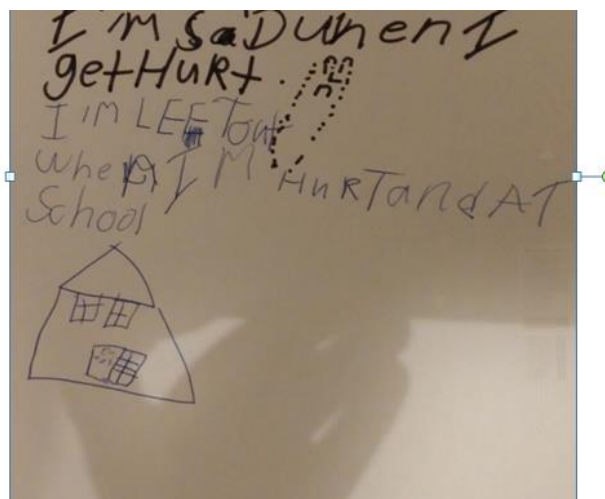 I'm SaD when I
get HuRt.
I'm LEFT out
when I'M HuRT and AT
School